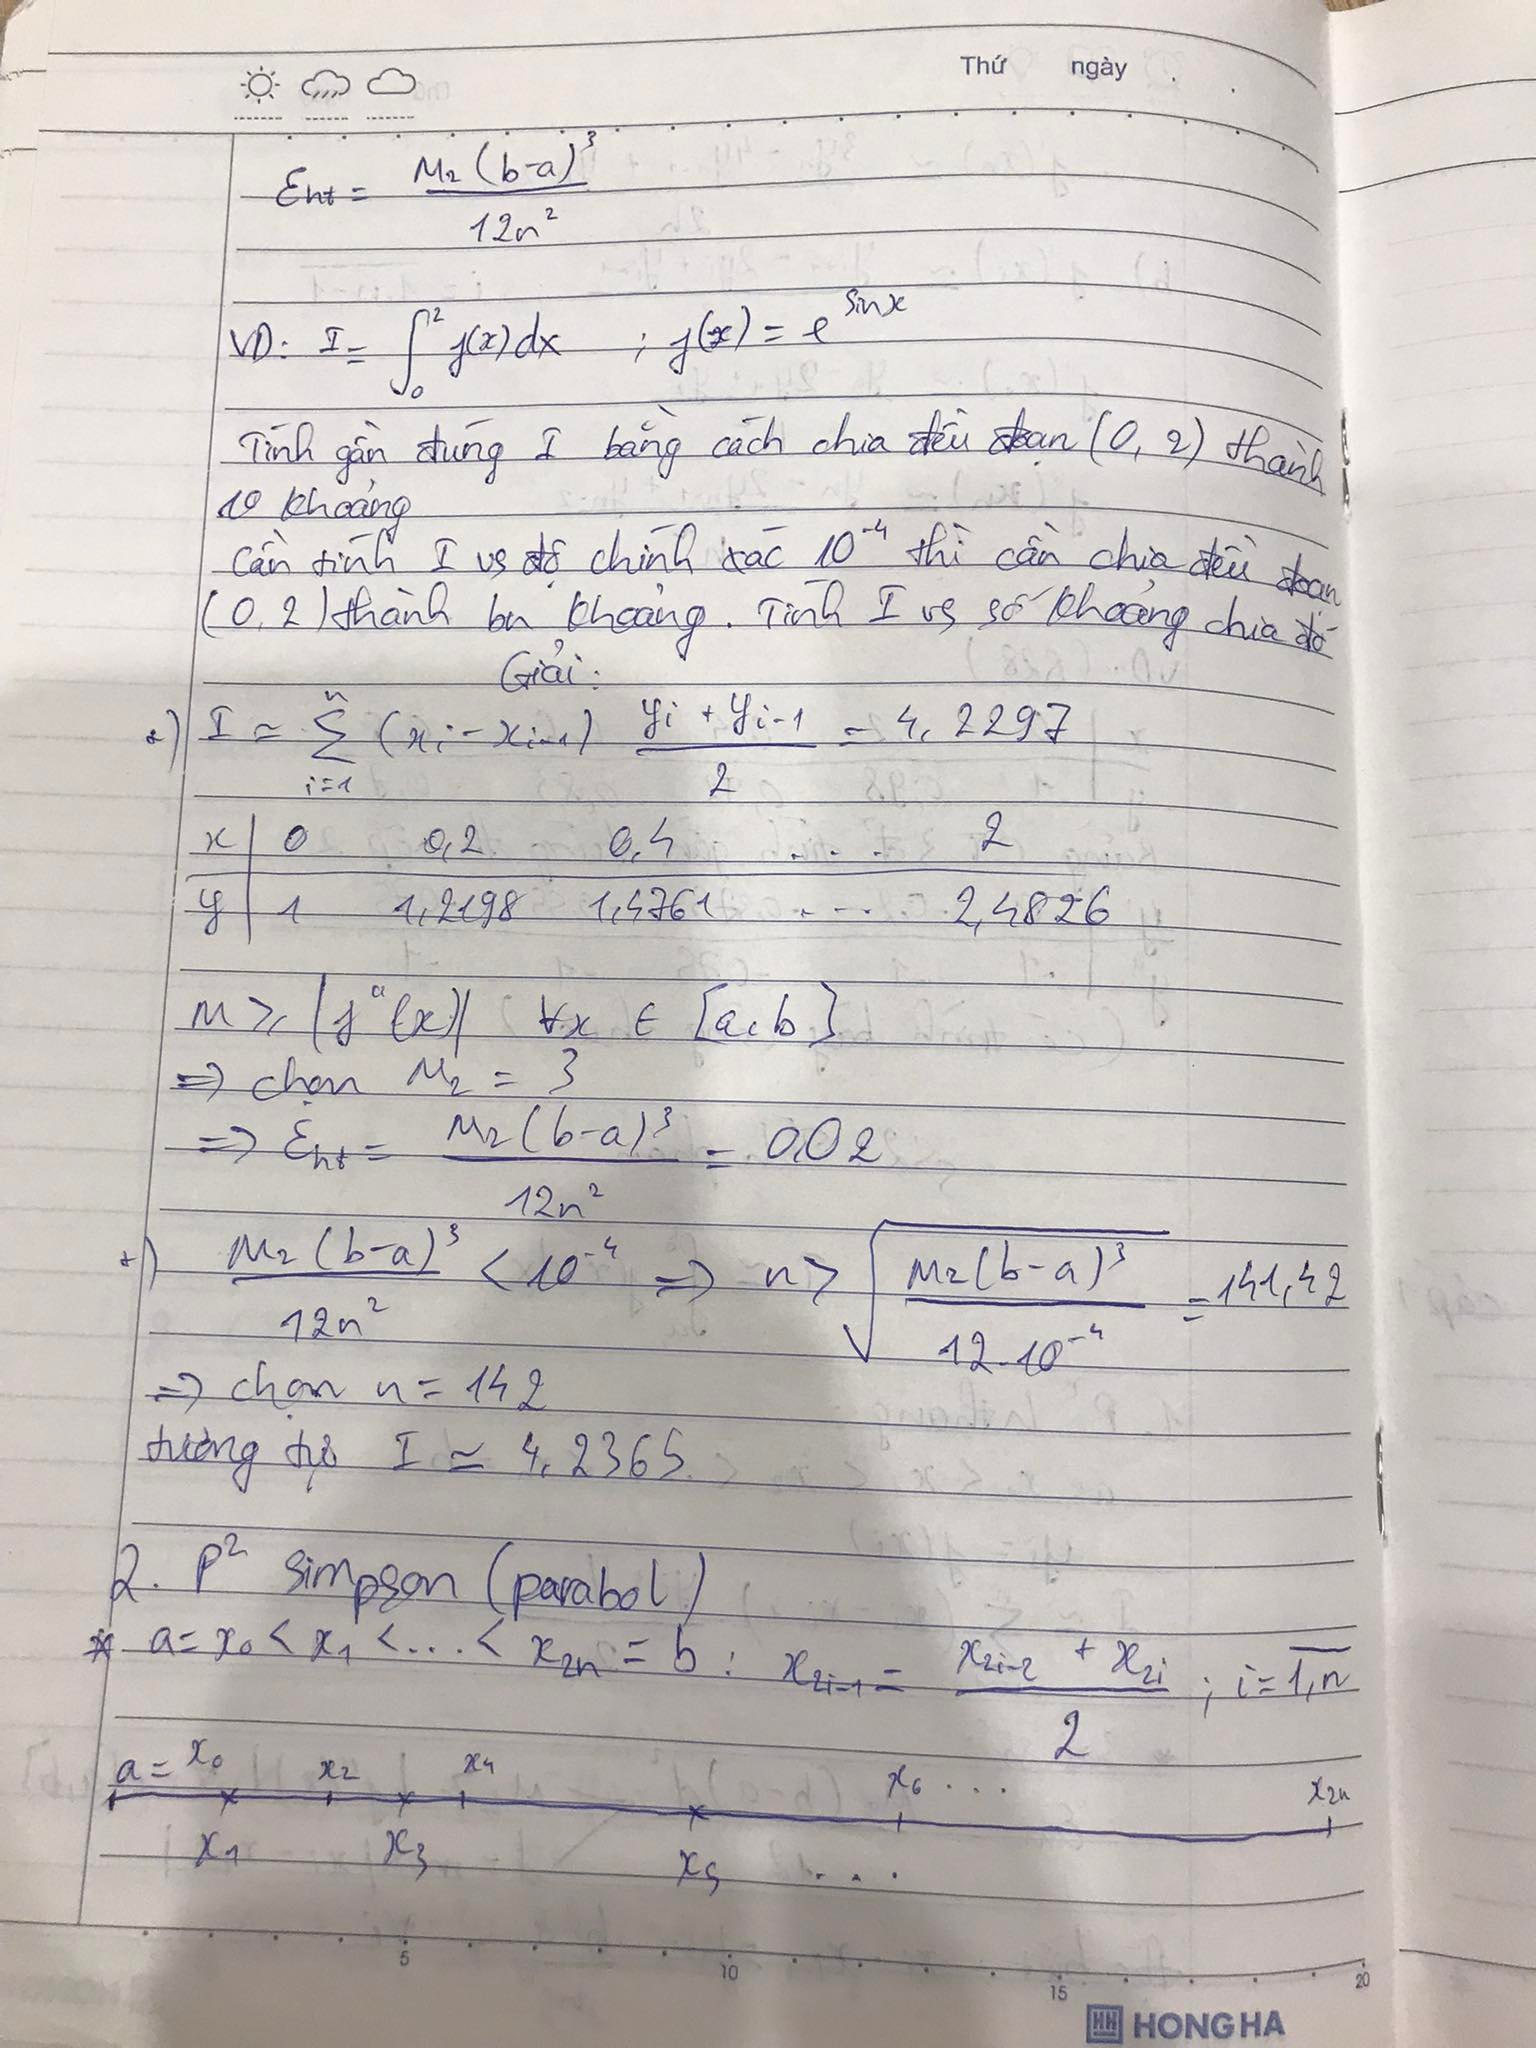 Thứ ngày
εht = M2(b-a)³ / 12n²
VD: I = ∫₀² f(x)dx ; f(x) = e^sinx
Tính gần đúng I bằng cách chia đều đoạn (0, 2) thành
10 khoảng
Cần tính I vs độ chính xác 10⁻⁴ thì cần chia đều đoạn
(0, 2) thành bn khoảng. Tính I vs số khoảng chia đó
Giải:
+) I ≃ Σ_{i=1}^{n} (xi - xi-1) (yi + yi-1)/2 = 4,2297
x | 0 0,2 0,4 .... 2
y | 1 1,2198 1,4761 .... 2,4826
M ≥ |f"(x)| ∀x ∈ [a,b]
=> chọn M2 = 3
=> εht = M2(b-a)³ / 12n² = 0,02
+) M2(b-a)³ / 12n² < 10⁻⁴ => n > √(M2(b-a)³ / 12.10⁻⁴) = 141,42
=> chọn n = 142
tương tự I ≃ 4,2365
2. P² simpson (parabol)
* a = x0 < x1 < ... < x2n = b : x2i-1 = (x2i-2 + x2i)/2 ; i = 1,n
a = x0 x2 x4 x6 ... x2n
x1 x3 x5 ...
5 10 15 20
HH HONG HA